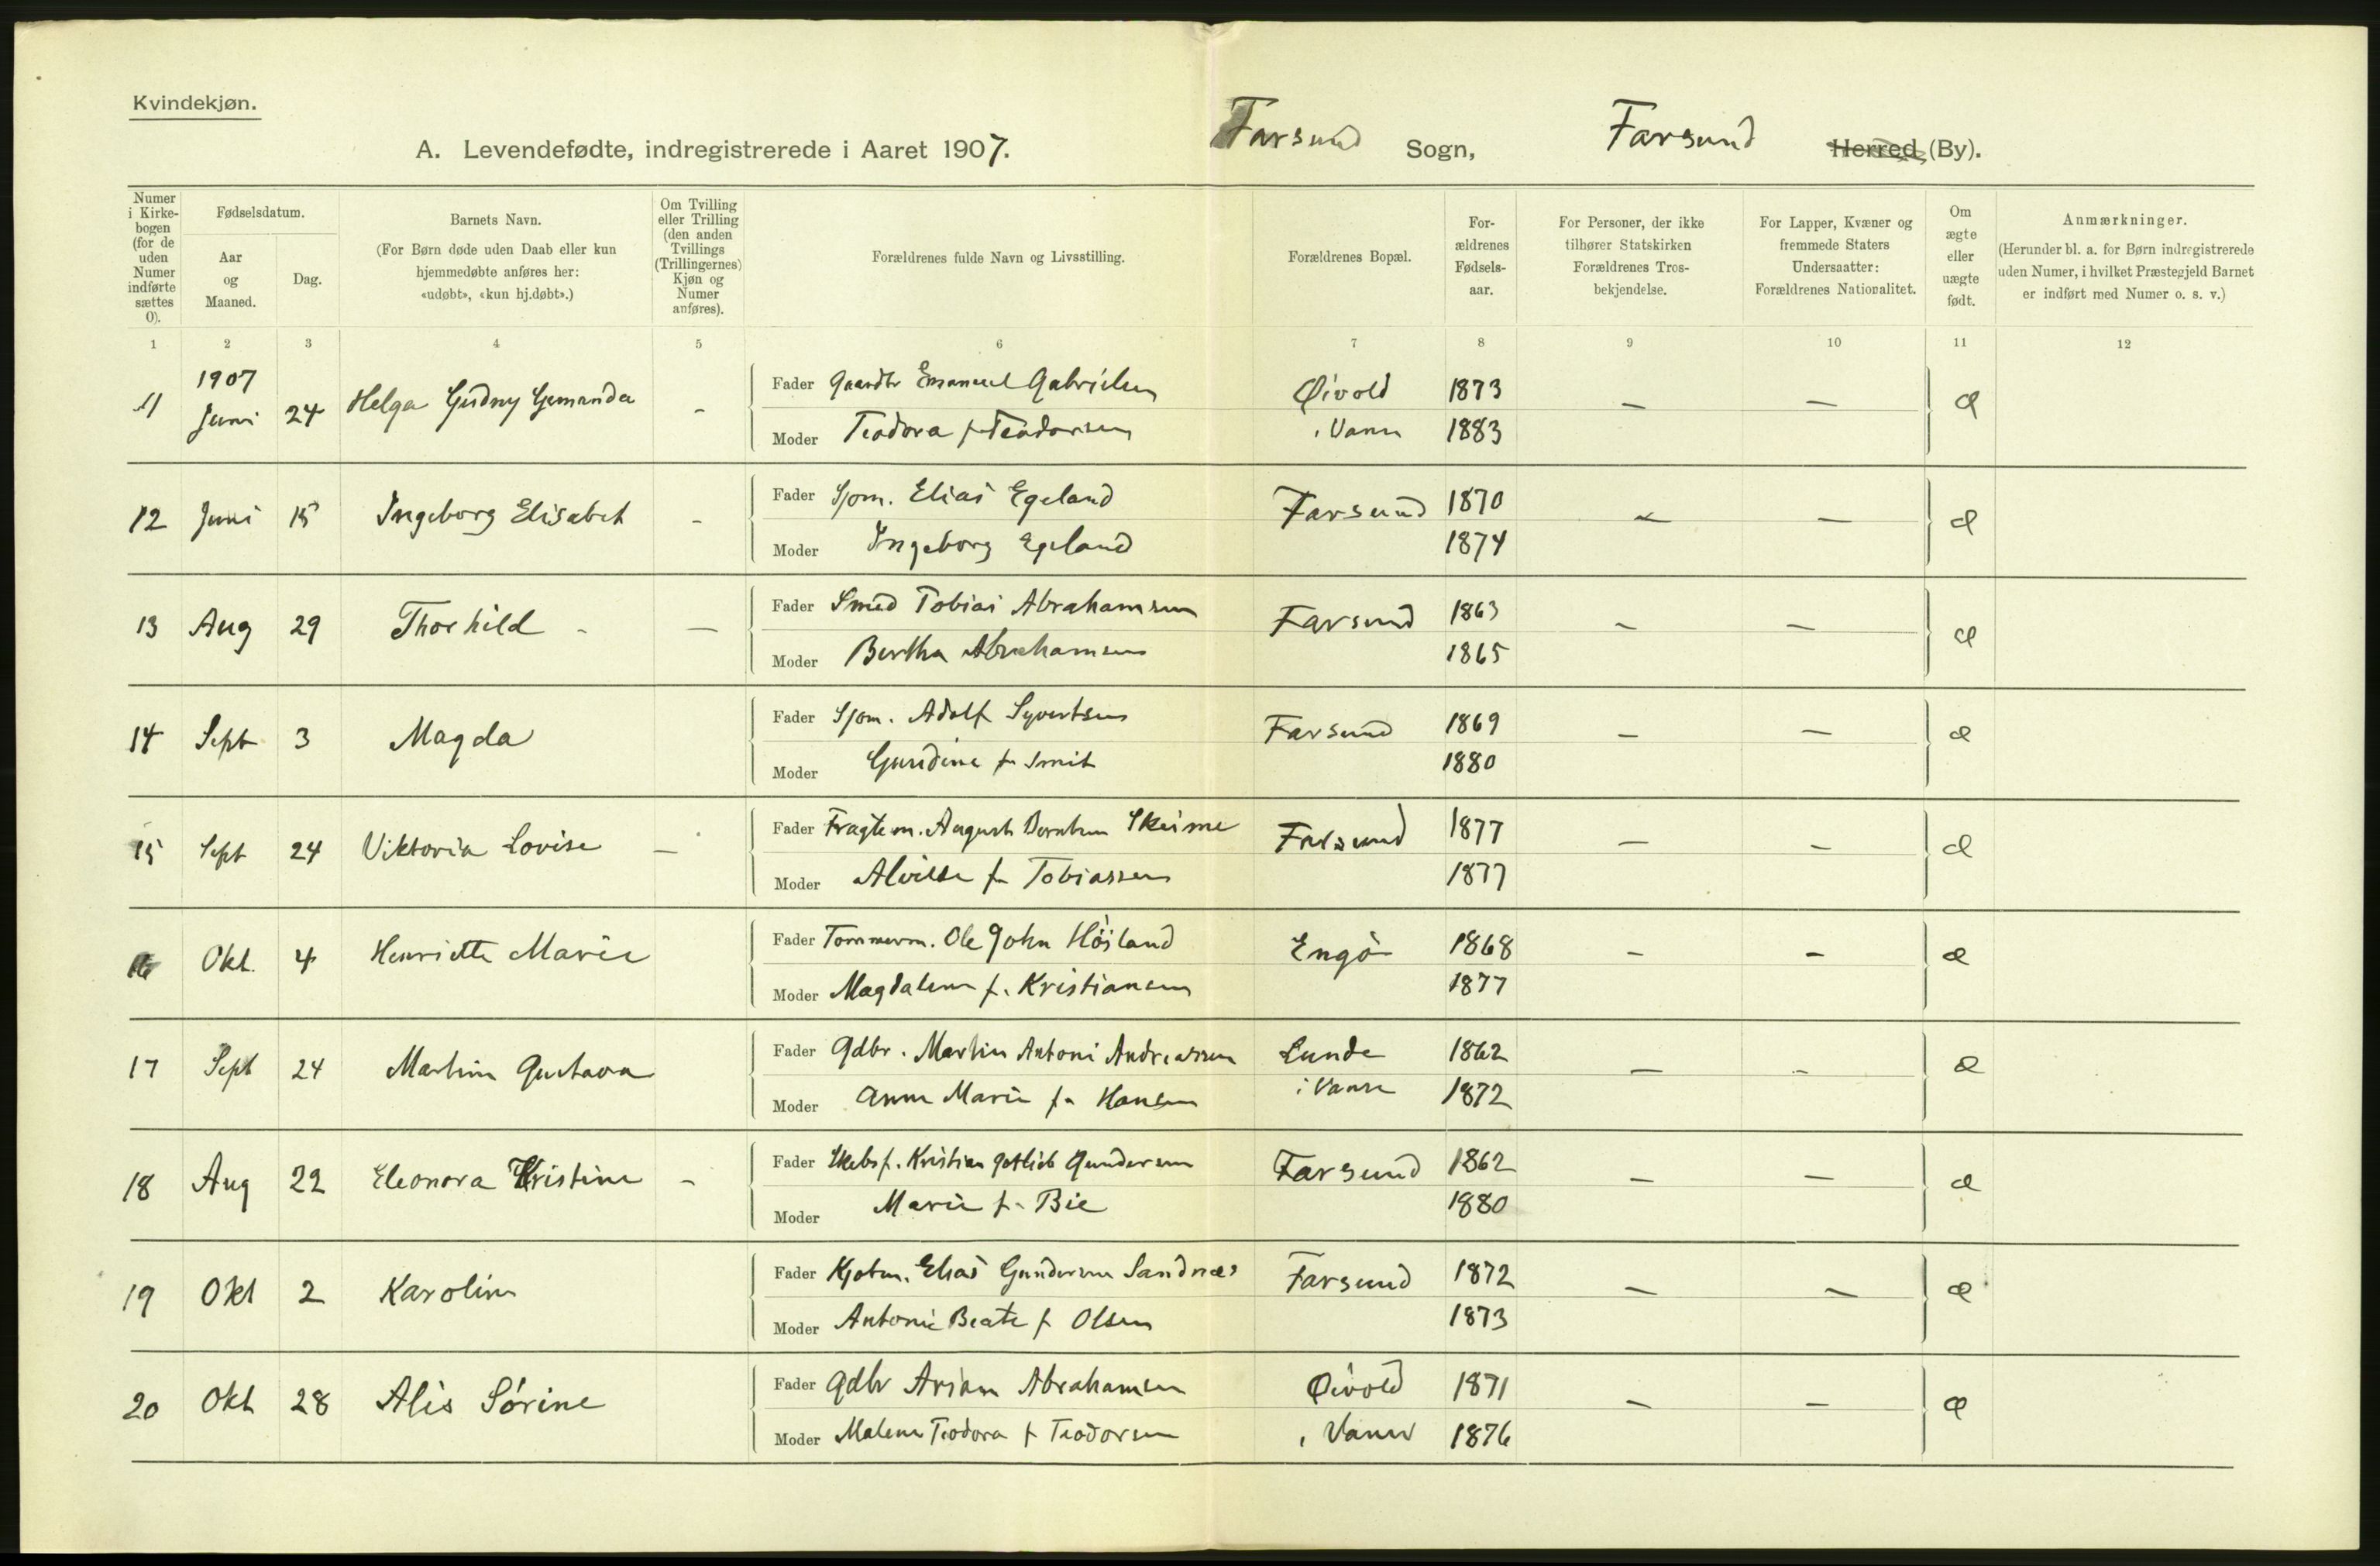 Kvindekjøn.
A. Levendefødte, indregistrerede i Aaret 1907. Farsund Sogn, Farsund Herred (By).
Numer i Kirkebogen (for de uden Numer indførte sættes 0).
Fødselsdatum.
Aar og Maaned.
Dag.
Barnets Navn.
(For Børn døde uden Daab eller kun hjemmedøbte anføres her: «udøbt», «kun hj.døbt».)
Om Tvilling eller Trilling (den anden Tvillings (Trillingernes) Kjøn og Numer anføres).
Forældrenes fulde Navn og Livsstilling.
Forældrenes Bopæl.
Forældrenes Fødselsaar.
For Personer, der ikke tilhører Statskirken Forældrenes Trosbekjendelse.
For Lapper, Kvæner og fremmede Staters Undersaatter: Forældrenes Nationalitet.
Om ægte eller uægte født.
Anmærkninger.
(Herunder bl. a. for Børn indregistrerede uden Numer, i hvilket Præstegjeld Barnet er indført med Numer o. s. v.)
1 2 3 4 5 6 7 8 9 10 11 12
1907
11 Juni 24 Helga Gudny - Fader Gaardbr Emanuel Gabrielsen Øivold 1873 — — æ
Moder Teodora f. Teodorsen i Vanse 1883
12 Juni 15 Ingeborg Elisabet - Fader Sjøm. Elias Egeland Farsund 1870 — — æ
Moder Ingeborg Egeland 1874
13 Aug 29 Thorhild - — Fader Smed Tobias Abrahamsen Farsund 1863 — — æ
Moder Bertha Abrahamsen 1865
14 Sept 3 Magda Fader Sjøm. Adolf Syvertsen Farsund 1869 — — æ
Moder Guridine f. Smit 1880
15 Sept 24 Viktoria Lovise — Fader Fragtem. August Berntsen Skeime Farsund 1877 — — æ
Moder Alvilde f. Tobiassen 1877
16 Okt. 4 Henriette Marie Fader Tømmerm. Ole John Høiland Engø 1868 - - æ
Moder Magdalene f. Kristiansen 1877
17 Sept 24 Martine Gustava Fader Gdbr. Martin Antoni Andreassen Lunde 1862 — - æ
Moder Anne Marie f. Hansen i Vanse 1872
18 Aug 22 Eleonora Kristine - Fader Skebsf. Kristian Gotlieb Gundersen Farsund 1862 — — æ
Moder Marie f. Bie 1880
19 Okt 2 Karoline Fader Kjøbm. Elias Gundersen Sandnæs Farsund 1872 — — æ
Moder Antonie Beate f. Olsen 1873
20 Okt 28 Alis Sørine Fader Gdbr Arian Abrahamsen Øivold 1871 — — æ
Moder Malene Teodora f. Teodorsen i Vanse 1876